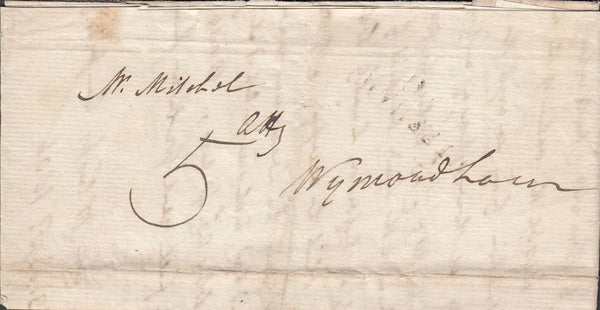 Mr. Mitchel
Atty
5
Wymondham